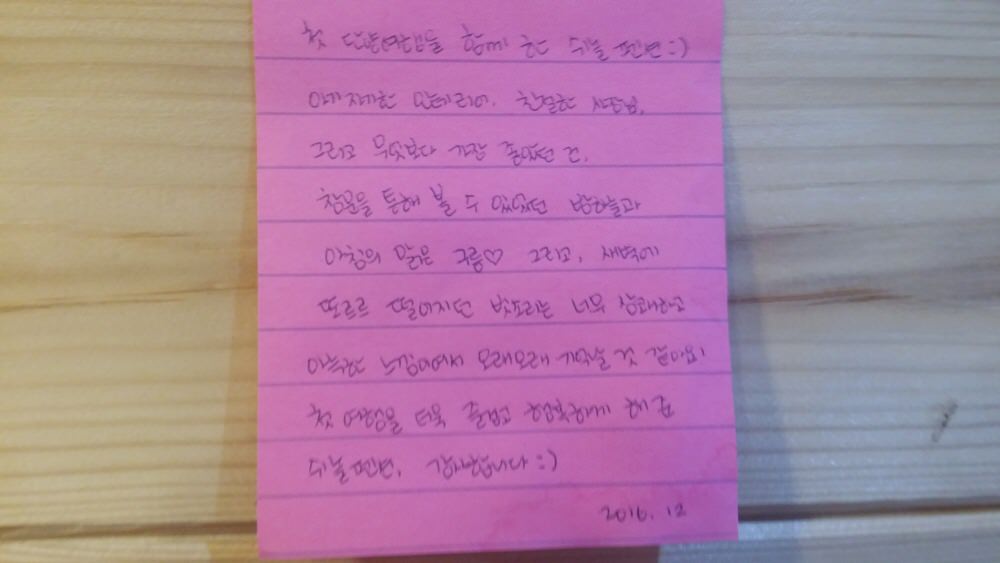 첫 단둘여행을 함께 한 쉬눌 펜션 :)
아기자기한 인테리어. 친절한 사장님.
그리고 무엇보다 가장 좋았던 건.
창문을 통해 볼 수 있었던 밤하늘과
아침의 맑은 구름♡ 그리고, 새벽에
또르르 떨어지던 빗소리는 너무 상쾌하고
아늑한 느낌이어서 오래오래 기억날 것 같아요!
첫 여행을 더욱 즐겁고 행복하게 해 준
쉬눌 펜션. 감사합니다 :)
2016. 12